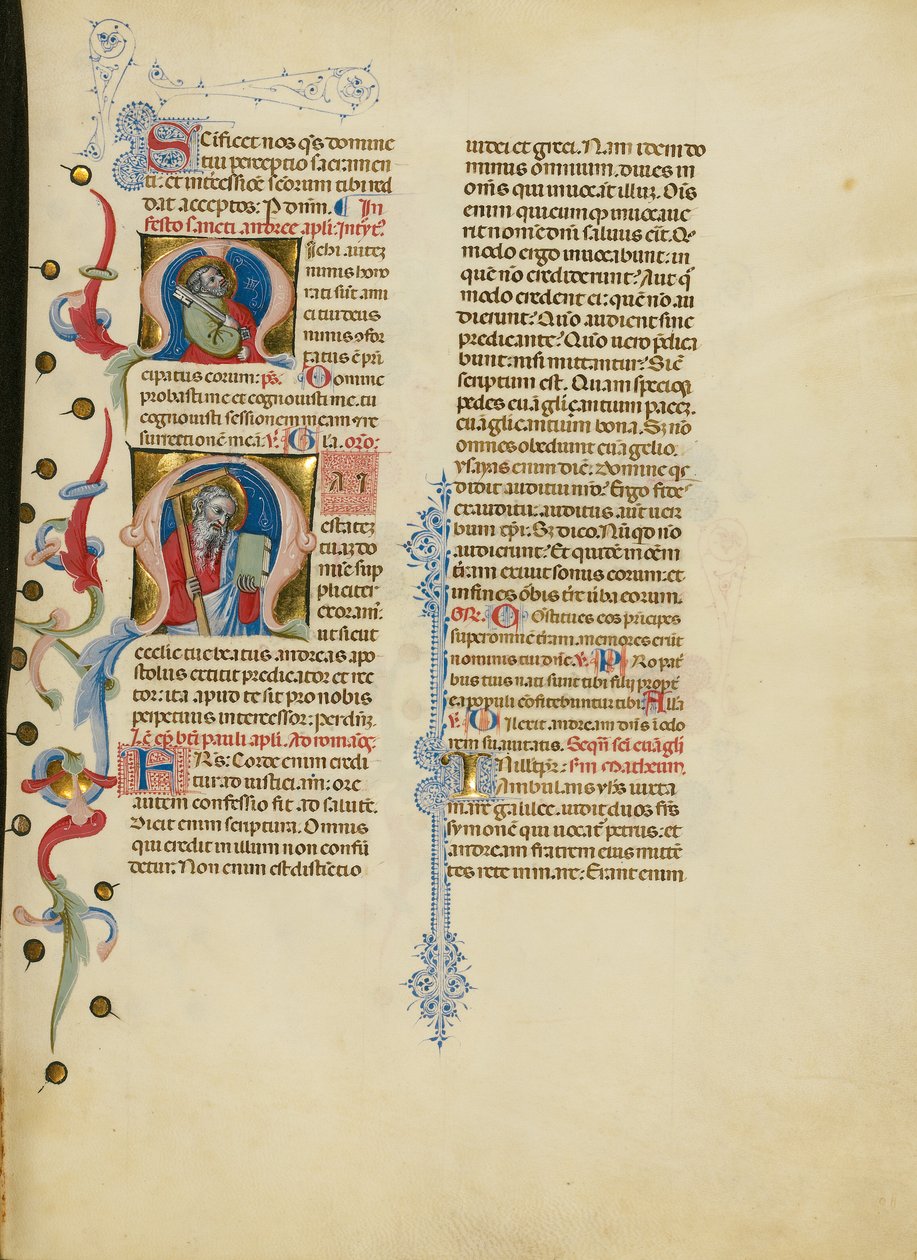 Scificet nos q̄s domine
tui perceptio sacramen
ti: et inte͛cessiōe sc̄orum tibi red
dat acceptos: P dn̄m. In
festo sancti andree apl̓i. Intro͛t̓.
Michi autē
nimis hono
rati sūt ami
ci tui deus
nimis ɔfor
tatus ē pr̄i
cipatus eorum: ps̄. Domine
probasti me et cognouisti me: tu
cognouisti sessionem meam ⁊ re
surrectionē meā: ꝟ. Gl̓a. or̄o:
MAI
estatē
tuaꝫ do
mīe sup
pliciter
exoram̓:
ut sicut
ecclie tue beatus andreas apo
stolus extitit predicator et rec
tor: ita apud te sit pro nobis
perpetuus intercessor: per dn̄ꝫ.
Lc̄ ep̄. bt̄i pauli apl̓i. Ad romāos̄.
FRs̄: Corde enim credi
tur ad iusticiam: ore
autem confessio fit ad salutē.
Dicit enim scriptura. Omnis
qui credit in illum non confū
detur: Non enim est distīctio
iudei et greci. Nam idem do
minus omnium: diues in
om̄s qui inuocāt illuꝫ. Om̄s
enim quicumqꝫ inuocaue
rit nomē dn̄i saluus erit. Qͦ
modo ergo inuocabunt: in
quē nō crediderunt? Aut qͦ
modo credent ei: quē nō au
dierunt? Quō audient sine
predicante? Quō uero p̄dica
bunt: nisi mittantur? Sic̄
scriptum est. Quam speciosi
pedes euāgliçantium pacēꝫ.
euāgliçantium bona. Sꝫ nō
omnes obediunt euāgelio.
ysayas enim dic̄. Domine q̓s
didit auditui nr̄o? Ergo fides
ex auditu: auditus aut̄ uer
bum xp̄i. Sꝫ dico. Nūqͥd nō
audierunt? Et quidē in oēm
tr̄am exiuit sonus eorum: et
in fines orbis tr̄e ūba eorum.
GR̄. Constitues eos pricipes
super omnē tr̄am. memores erūt
nominis tui dn̄e. ꝟ. Pro pat͛
bus tuis nati sunt tibi filij propt̄
ea populi cōfitebuntur tibi. All̓a
ꝟ. Dilexit andream dn̄s ī odo
rem suauitatis. Seqn̄ sc̄i euāgli
IN ill̓ tp̄r: sm̄ Matheum.
Ambulans yhs̄ iuxta
mare galilee. uidit duos fr̄s
symonē qui uocat̄ petrus: et
andream fratrem eius mittē
tes rete in mare: Erant enim